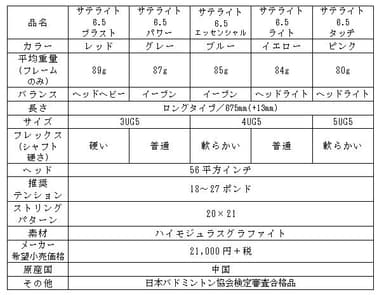 品名 サテライト6.5ブラスト サテライト6.5パワー サテライト6.5エッセンシャル サテライト6.5ライト サテライト6.5タッチ
カラー レッド グレー ブルー イエロー ピンク
平均重量(フレームのみ) 89g 87g 85g 84g 80g
バランス ヘッドヘビー イーブン イーブン ヘッドライト ヘッドライト
長さ ロングタイプ/675mm(+13mm)
サイズ 3UG5 4UG5 5UG5
フレックス(シャフト硬さ) 硬い 普通 軟らかい 普通 軟らかい
ヘッド 56平方インチ
推奨テンション 18~27ポンド
ストリングパターン 20×21
素材 ハイモジュラスグラファイト
メーカー希望小売価格 21,000円+税
原産国 中国
その他 日本バドミントン協会検定審査合格品